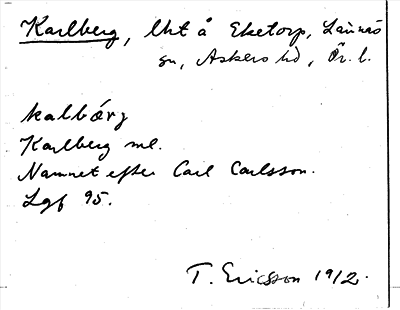 Karlberg, lht å Eketorp, Lännäs
sn, Askers hd, Ör. l.
kalbærj
Karlberg ml.
Namnet efter Carl Carlsson.
Lgf 95.
T. Ericsson 1912.